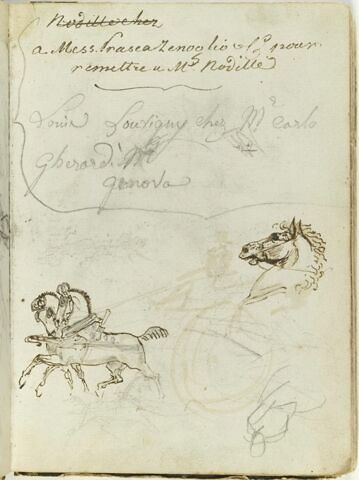 Nodille chez
a Mess. Frasca Zenoglio & pour
remettre a Mr. Nodille
Louis Louvigny chez Mr. Carlo
Gherardi
genova